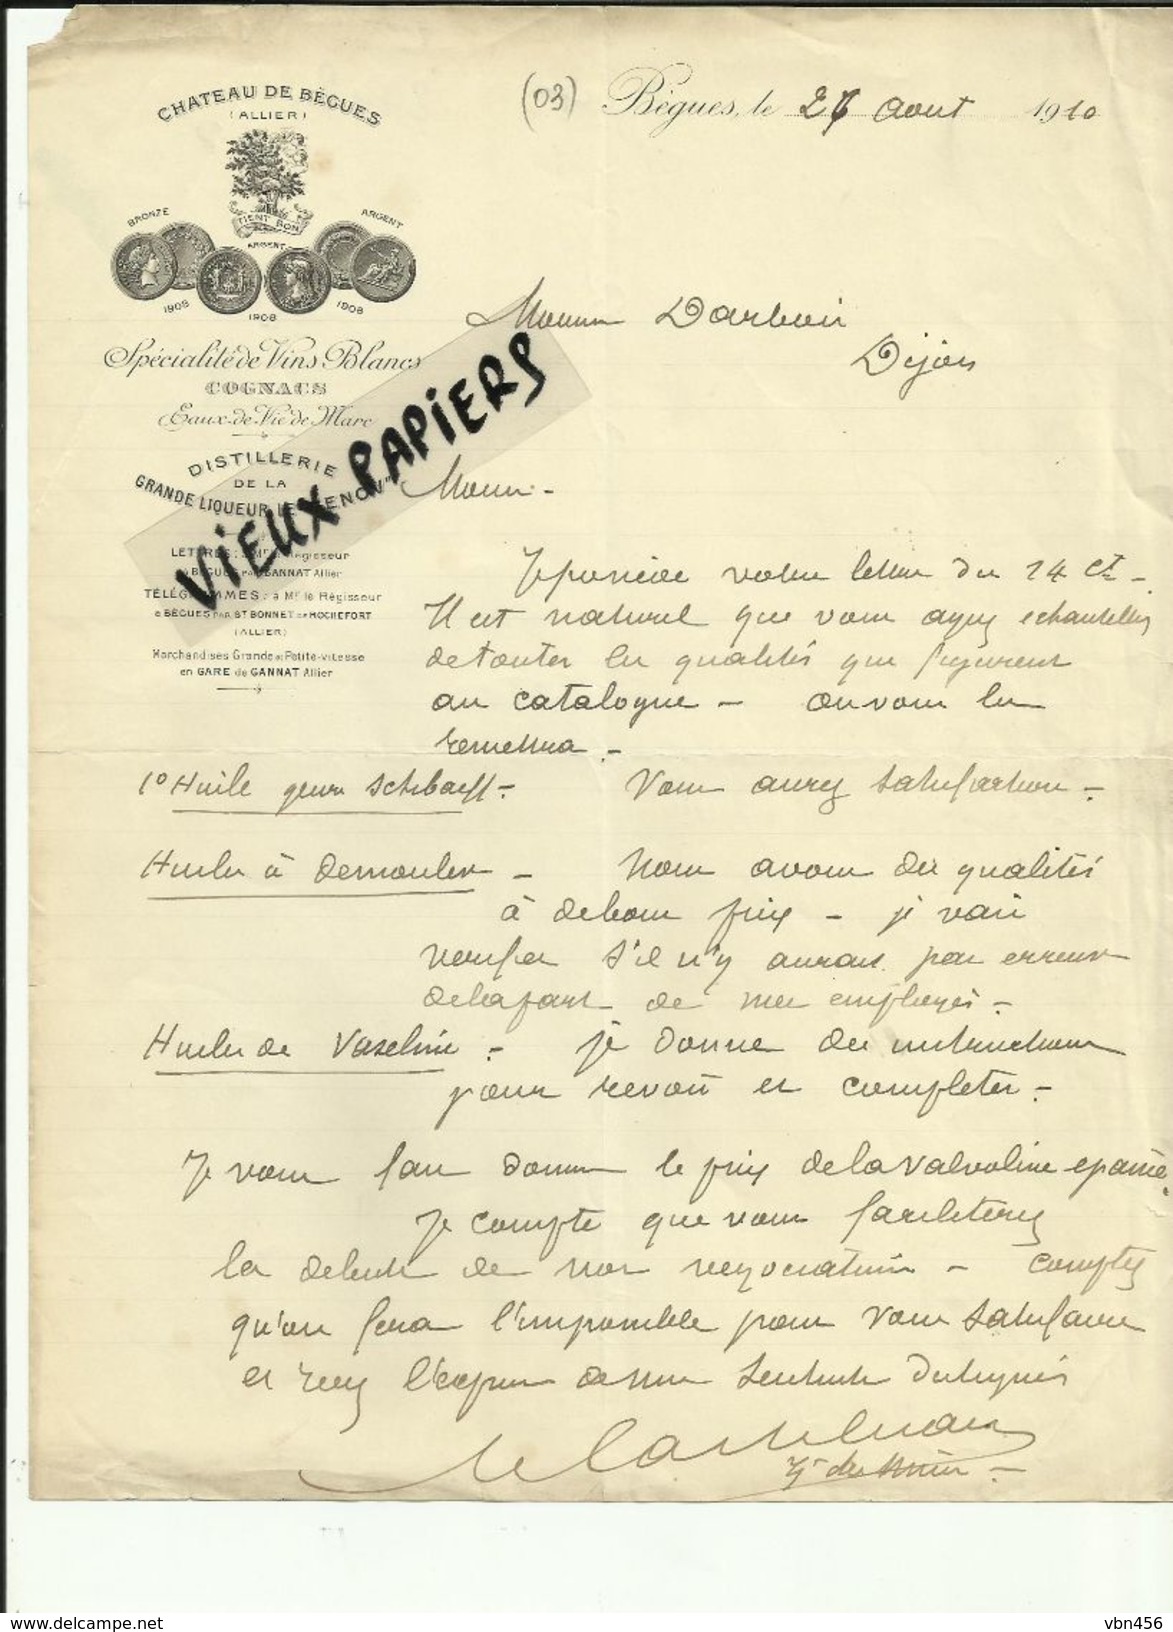 CHATEAU DE BÈGUES
(ALLIER)
TIENT BON
BRONZE
ARGENT
ARGENT
1908
1908
1908
Spécialité de Vins Blancs
COGNACS
Eaux-de-Vie de Marc
DISTILLERIE
DE LA
GRANDE LIQUEUR LE
LETTRES: à Mr le Régisseur
à BÈGUES par GANNAT Allier
TÉLÉGRAMMES: à Mr le Régisseur
à BÈGUES PAR St BONNET DE ROCHEFORT
(ALLIER)
Marchandises Grande et Petite-vitesse
en GARE de GANNAT Allier
VIEUX PAPIERS
(03)
Bègues, le 26 Aout 1910
Monsieur Darbois
Dijon
Monsieur -
Je possède votre lettre du 14 ct -
Il est naturel que vous ayez echantillons
de toutes les qualités qui figurent
au catalogue - on vous les
remettra -
1º Huile genre Schibaeff - Vous aurez satisfaction -
Huiles à demouler - Nous avons des qualités
à de bons prix - je vais
verifier s'il n'y aurait pas erreur
de la part de mes employés -
Huiles de Vaseline - je donne des instructions
pour revoir et completer -
Je vous fais donner le prix de la valvoline epaisse
Je compte que vous faciliterez
les debuts de nos negociations - comptez
qu'on fera l'impossible pour vous satisfaire
et recevez l'expression de mes sentiments distingués
Wait-free
vbn456